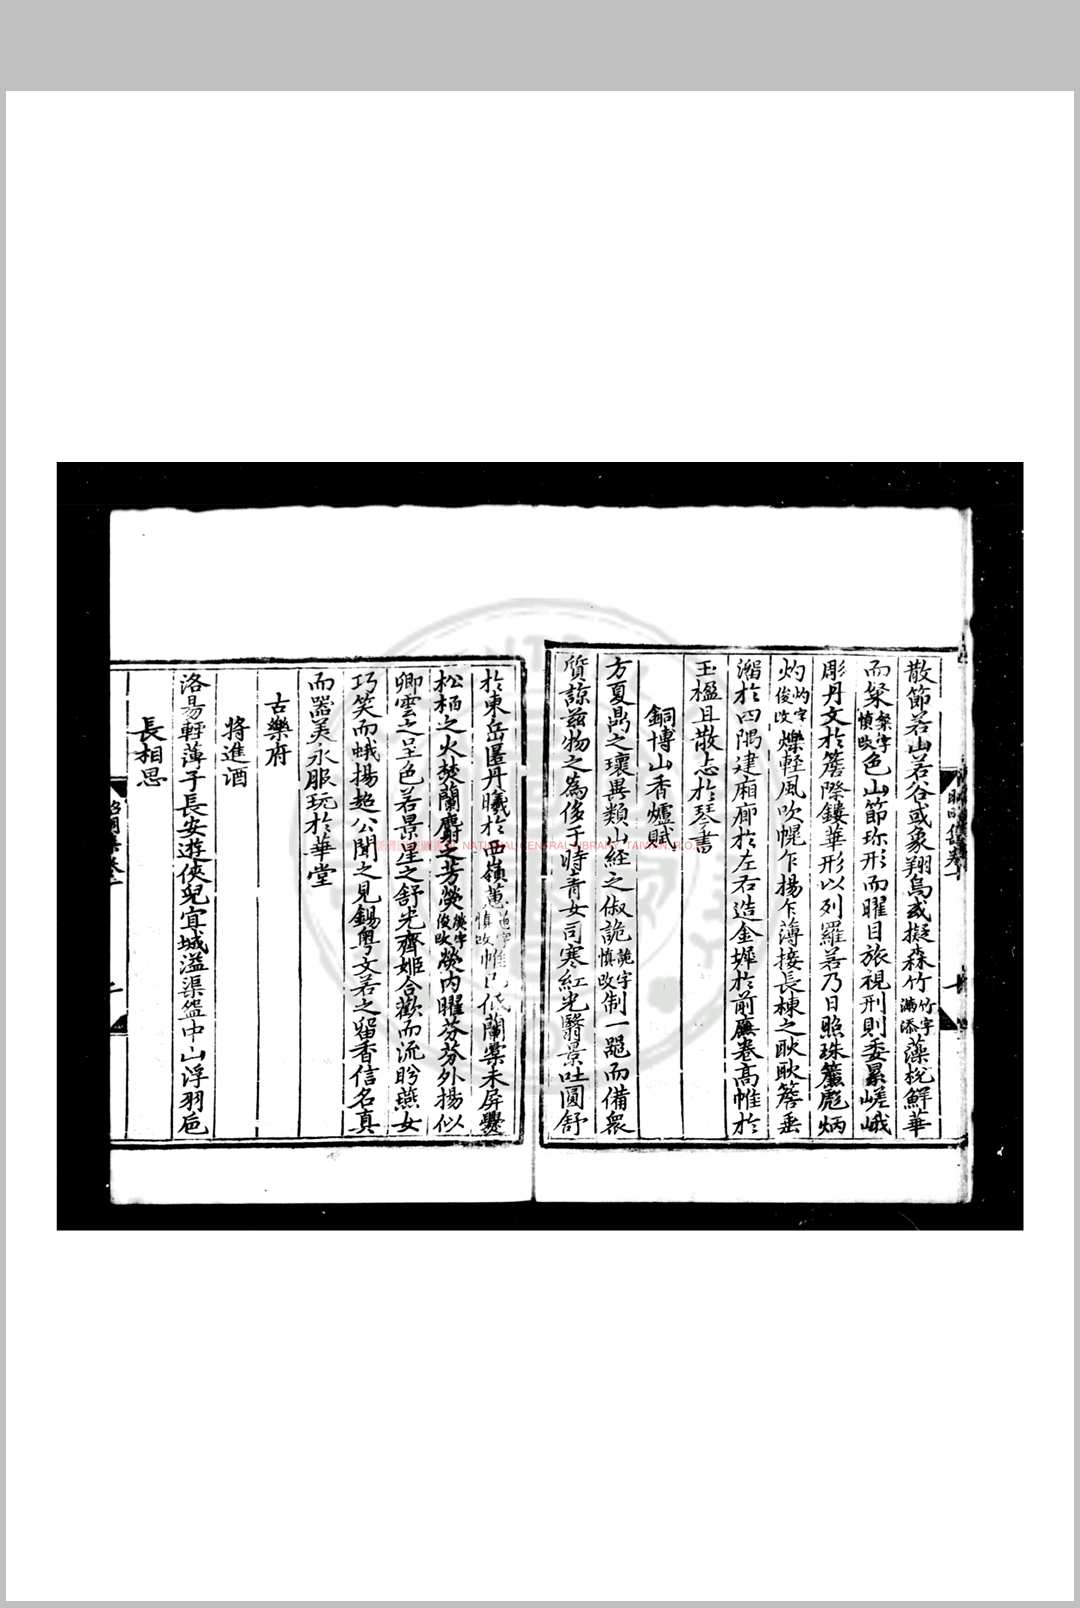 散節若山若谷或象翔鳥或擬森竹竹字滿添藻梲鮮華
而粲粲字慎改色山節珎形而曜目旅視形則委累嵯峨
彫丹文於簷際鏤華形以列羅若乃日照珠簾彪炳
灼灼字俊改爍輕風吹幌乍揚乍薄接長棟之耿耿簷垂
溜於四隅建廂廊於左右造金墀於前廡卷高帷於
玉楹且散志於琴書
銅博山香爐賦
方夏鼎之瓌異類山經之俶詭詭字慎改制一器而備衆
質諒兹物之為侈于時青女司寒紅光翳景吐圓舒
於東岳匿丹曦於西嶺蕙慎改帷已低蘭棠未屏爨
松栢之火焚蘭麝之芳熒熒字俊改熒内曜芬芬外揚似
卿雲之呈色若景星之舒光齊姬合歡而流眄燕女
巧笑而蛾揚超公聞之見錫粤文若之留香信名真
而器美永服玩於華堂
古樂府
將進酒
洛昜輕薄子長安遊俠兒宜城溢渠盌中山浮羽巵
長相思
昭明集卷